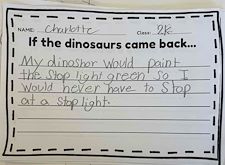 NAME: Charlotte Class: 2K
If the dinosaurs came back...
My dinoshor would paint
the stop light green so I
would never have to stop
at a stop light.